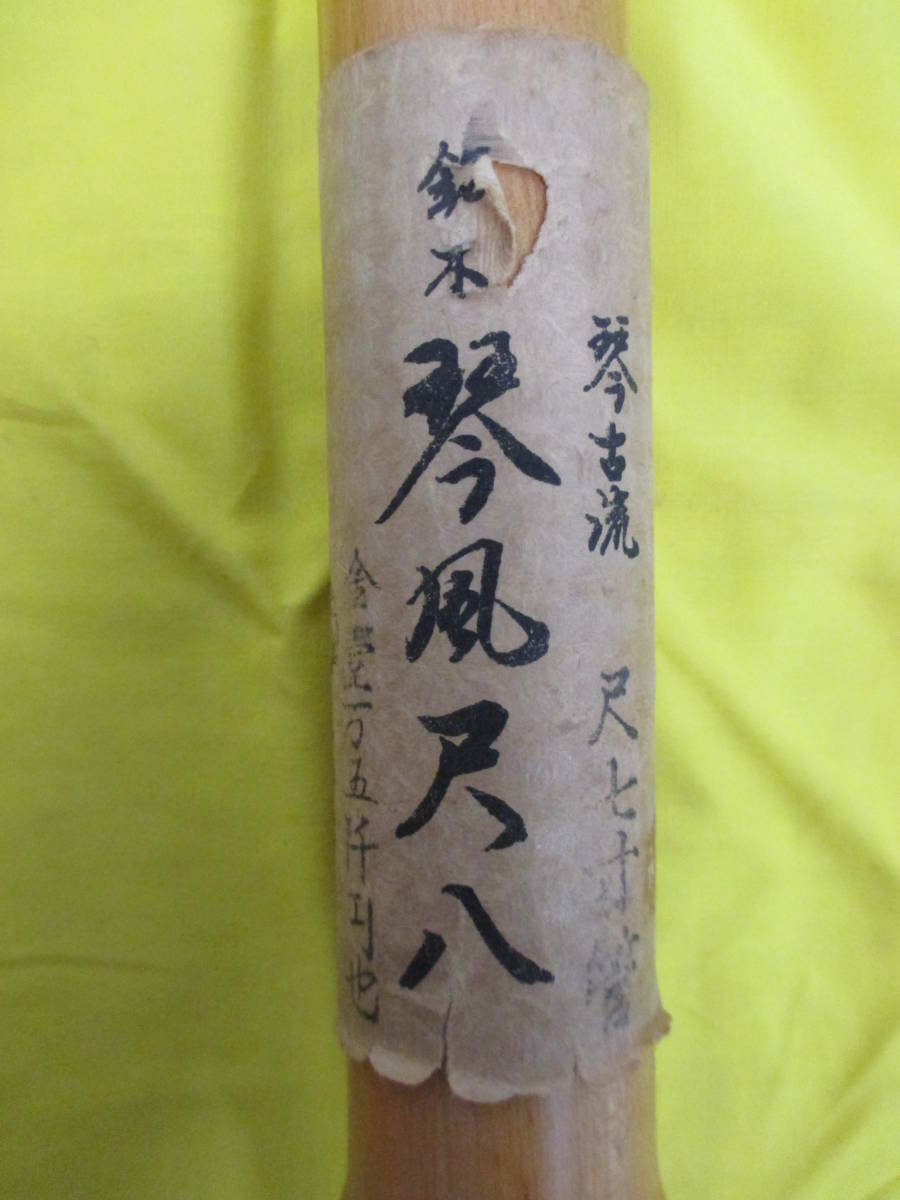 琴古流 尺七寸管
鈴木 琴風尺八
金壹万五阡円也